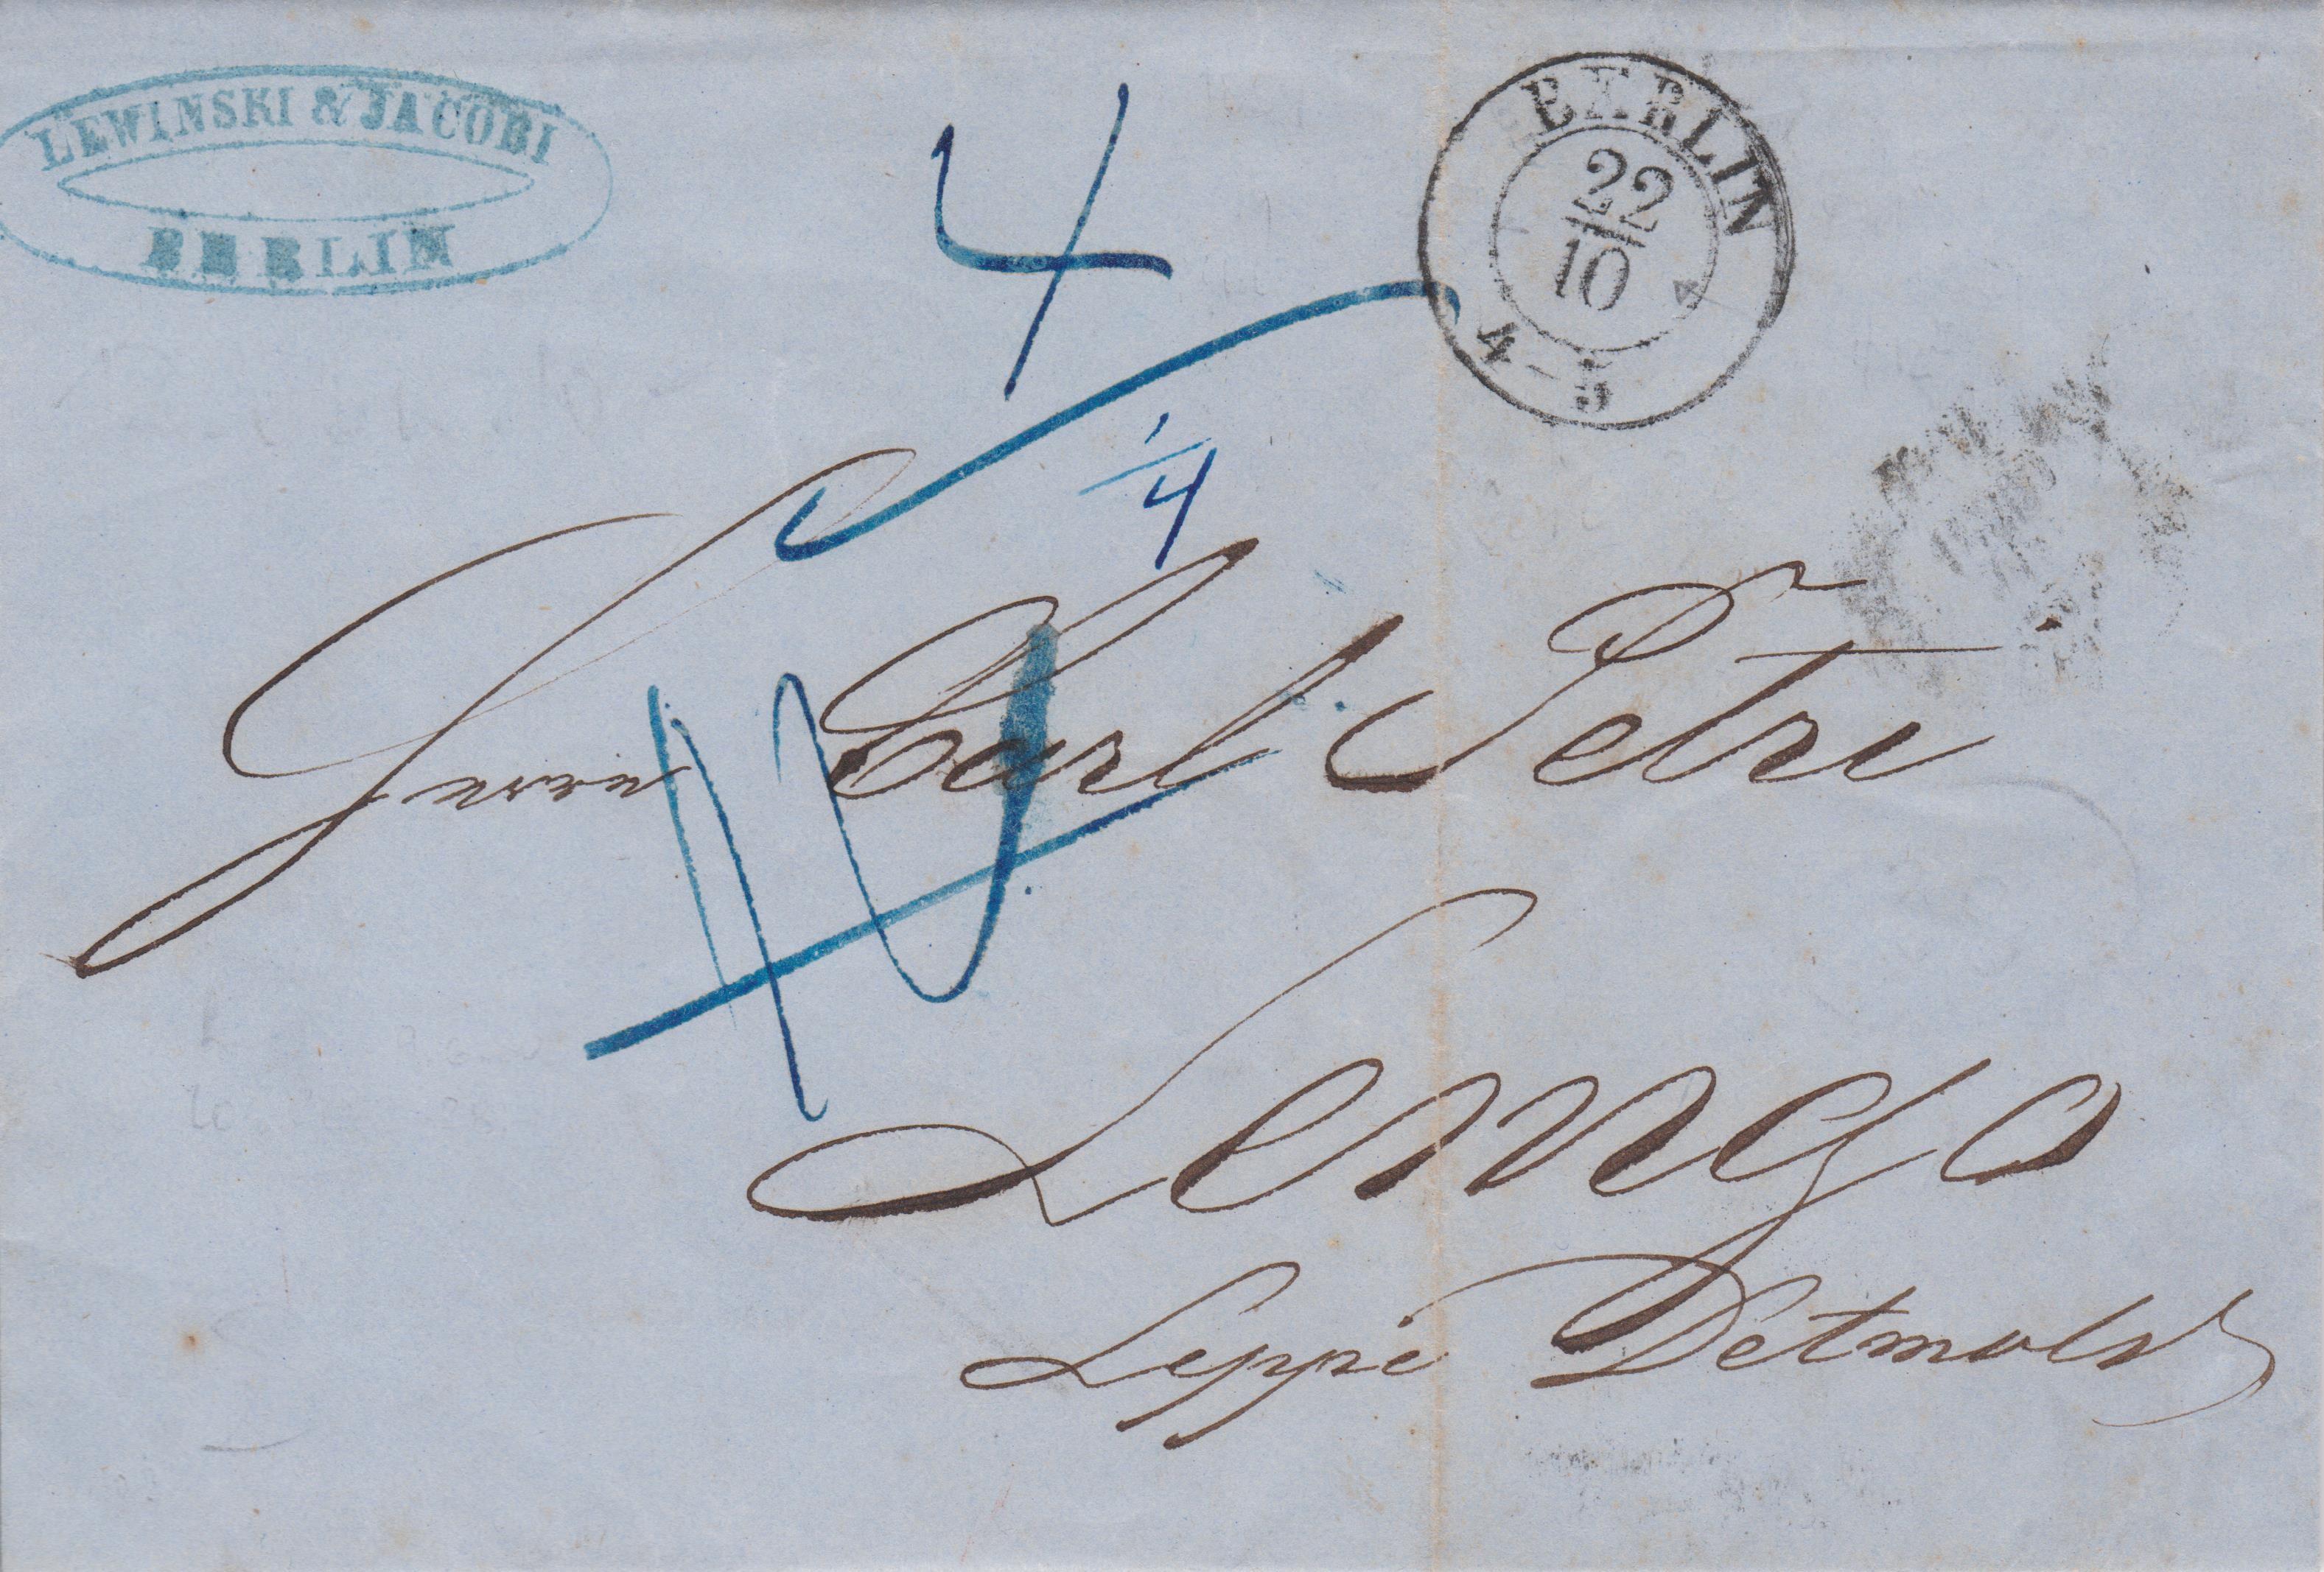 LEWINSKI & JACOBI
BERLIN
BERLIN
22
10
4-5
4
1/4
Herrn Carl Petri
Lemgo
Lippe Detmold